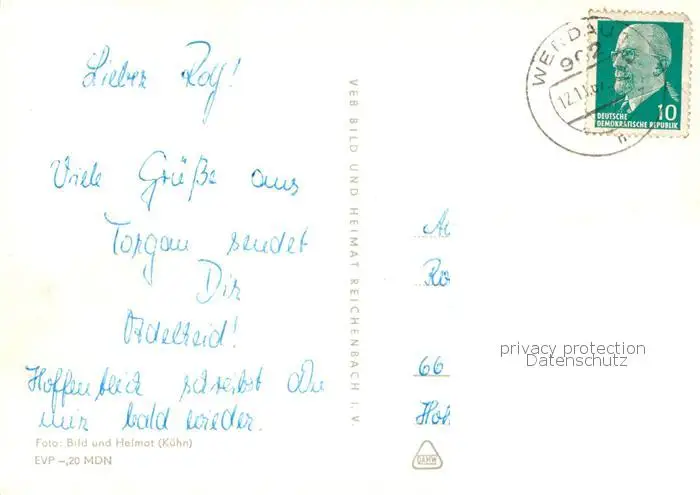 Lieber Rolf!
Viele Grüße aus
Torgau sendet
Dir
Adelheid!
Hoffentlich schreibst Du
mir bald wieder.
Foto: Bild und Heimat (Kühn)
EVP –,20 MDN
VEB BILD UND HEIMAT REICHENBACH i. V.
WERDAU
962
DEUTSCHE
DEMOKRATISCHE REPUBLIK
10
66
privacy protection
Datenschutz
DAMW